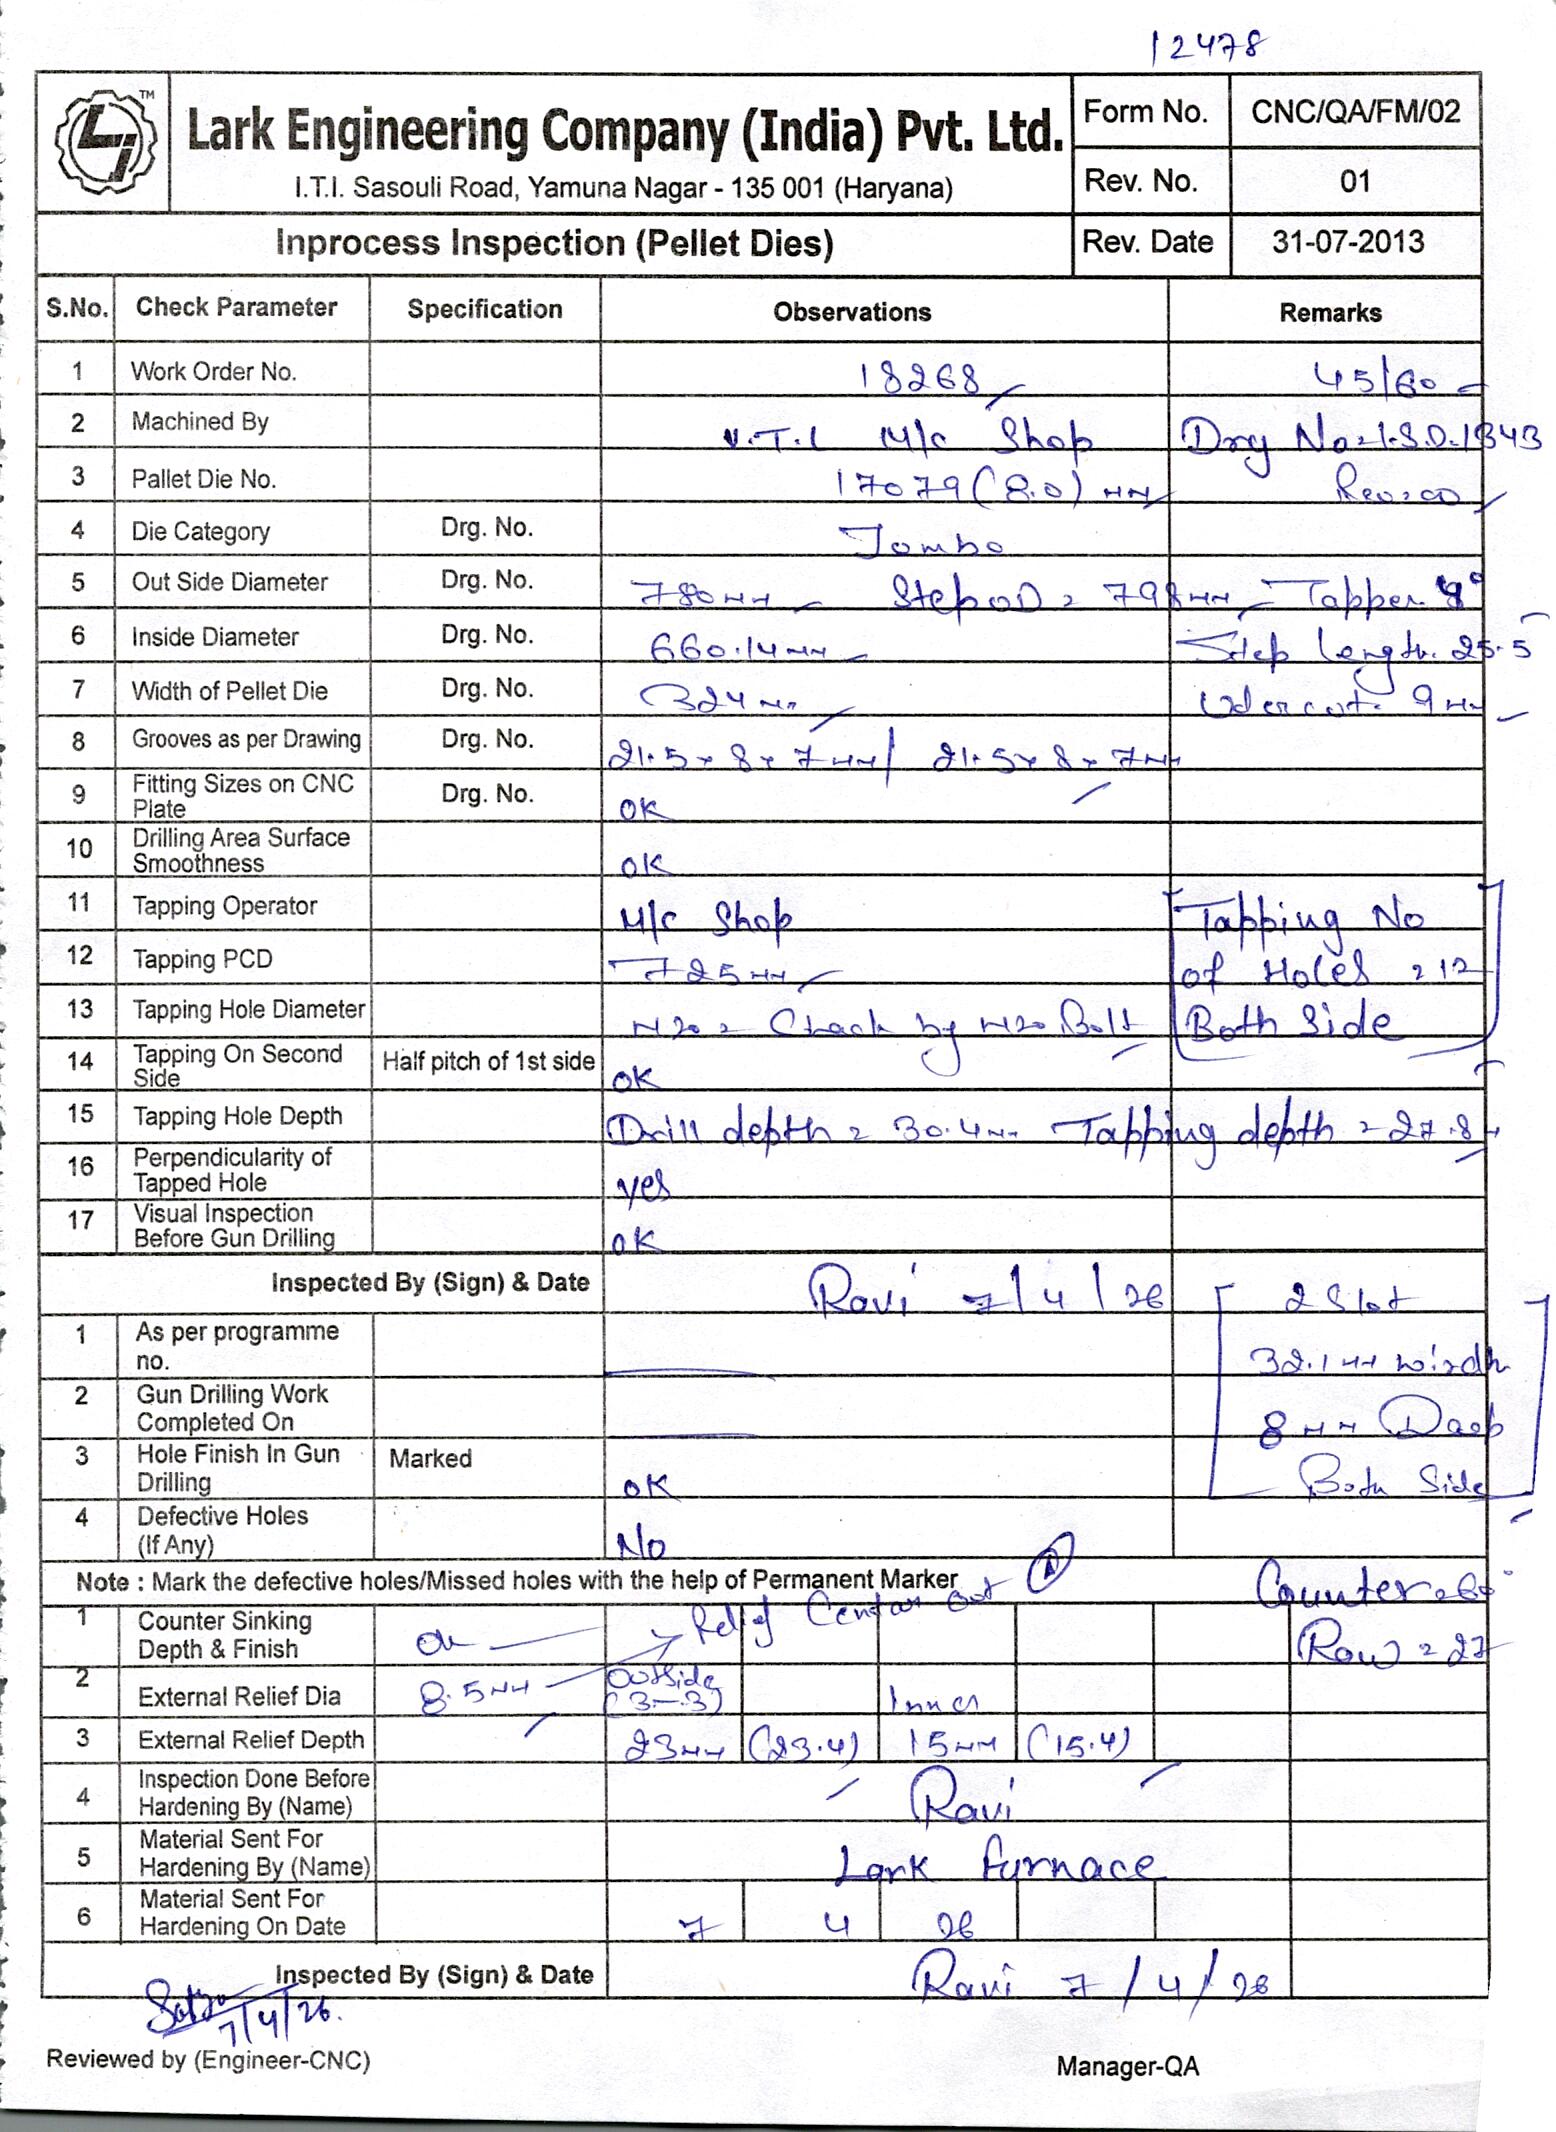 12478
TM
Lark Engineering Company (India) Pvt. Ltd.
I.T.I. Sasouli Road, Yamuna Nagar - 135 001 (Haryana)
Form No. CNC/QA/FM/02
Rev. No. 01
Inprocess Inspection (Pellet Dies) Rev. Date 31-07-2013
S.No. Check Parameter Specification Observations Remarks
1 Work Order No. 18268 45/60
2 Machined By M/c Shop
3 Pallet Die No. 17079 (8.0) mm
4 Die Category Drg. No. Jombo
5 Out Side Diameter Drg. No. 780mm Step OD = 798mm Tapper
6 Inside Diameter Drg. No. 660.14mm Step length. 25.5
7 Width of Pellet Die Drg. No. 324mm Udercut. 9mm
8 Grooves as per Drawing Drg. No. 21.5 x 8 x 7mm / 21.5 x 8 x 7mm
9 Fitting Sizes on CNC Plate Drg. No. OK
10 Drilling Area Surface Smoothness OK
11 Tapping Operator M/c Shop Tapping No
12 Tapping PCD 725mm of Holes = 12
13 Tapping Hole Diameter M20 = Check by M20 Bolt Both Side
14 Tapping On Second Side Half pitch of 1st side OK
15 Tapping Hole Depth Drill depth = 30.4mm Tapping depth = 27.8
16 Perpendicularity of Tapped Hole yes
17 Visual Inspection Before Gun Drilling OK
Inspected By (Sign) & Date Ravi 7/4/26 2 Slot
1 As per programme no. 32.1mm widh
2 Gun Drilling Work Completed On 8mm Deep
3 Hole Finish In Gun Drilling Marked OK Both Side
4 Defective Holes (If Any) No
Note : Mark the defective holes/Missed holes with the help of Permanent Marker Counter = 60°
1 Counter Sinking Depth & Finish Ok Relief Centar out Row = 27
2 External Relief Dia 8.5mm Outside (3-3) Inner
3 External Relief Depth 23mm (23.4) 15mm (15.4)
4 Inspection Done Before Hardening By (Name) Ravi
5 Material Sent For Hardening By (Name) Lark furnace
6 Material Sent For Hardening On Date 7 4 26
Inspected By (Sign) & Date Ravi 7/4/26
7/4/26.
Reviewed by (Engineer-CNC) Manager-QA